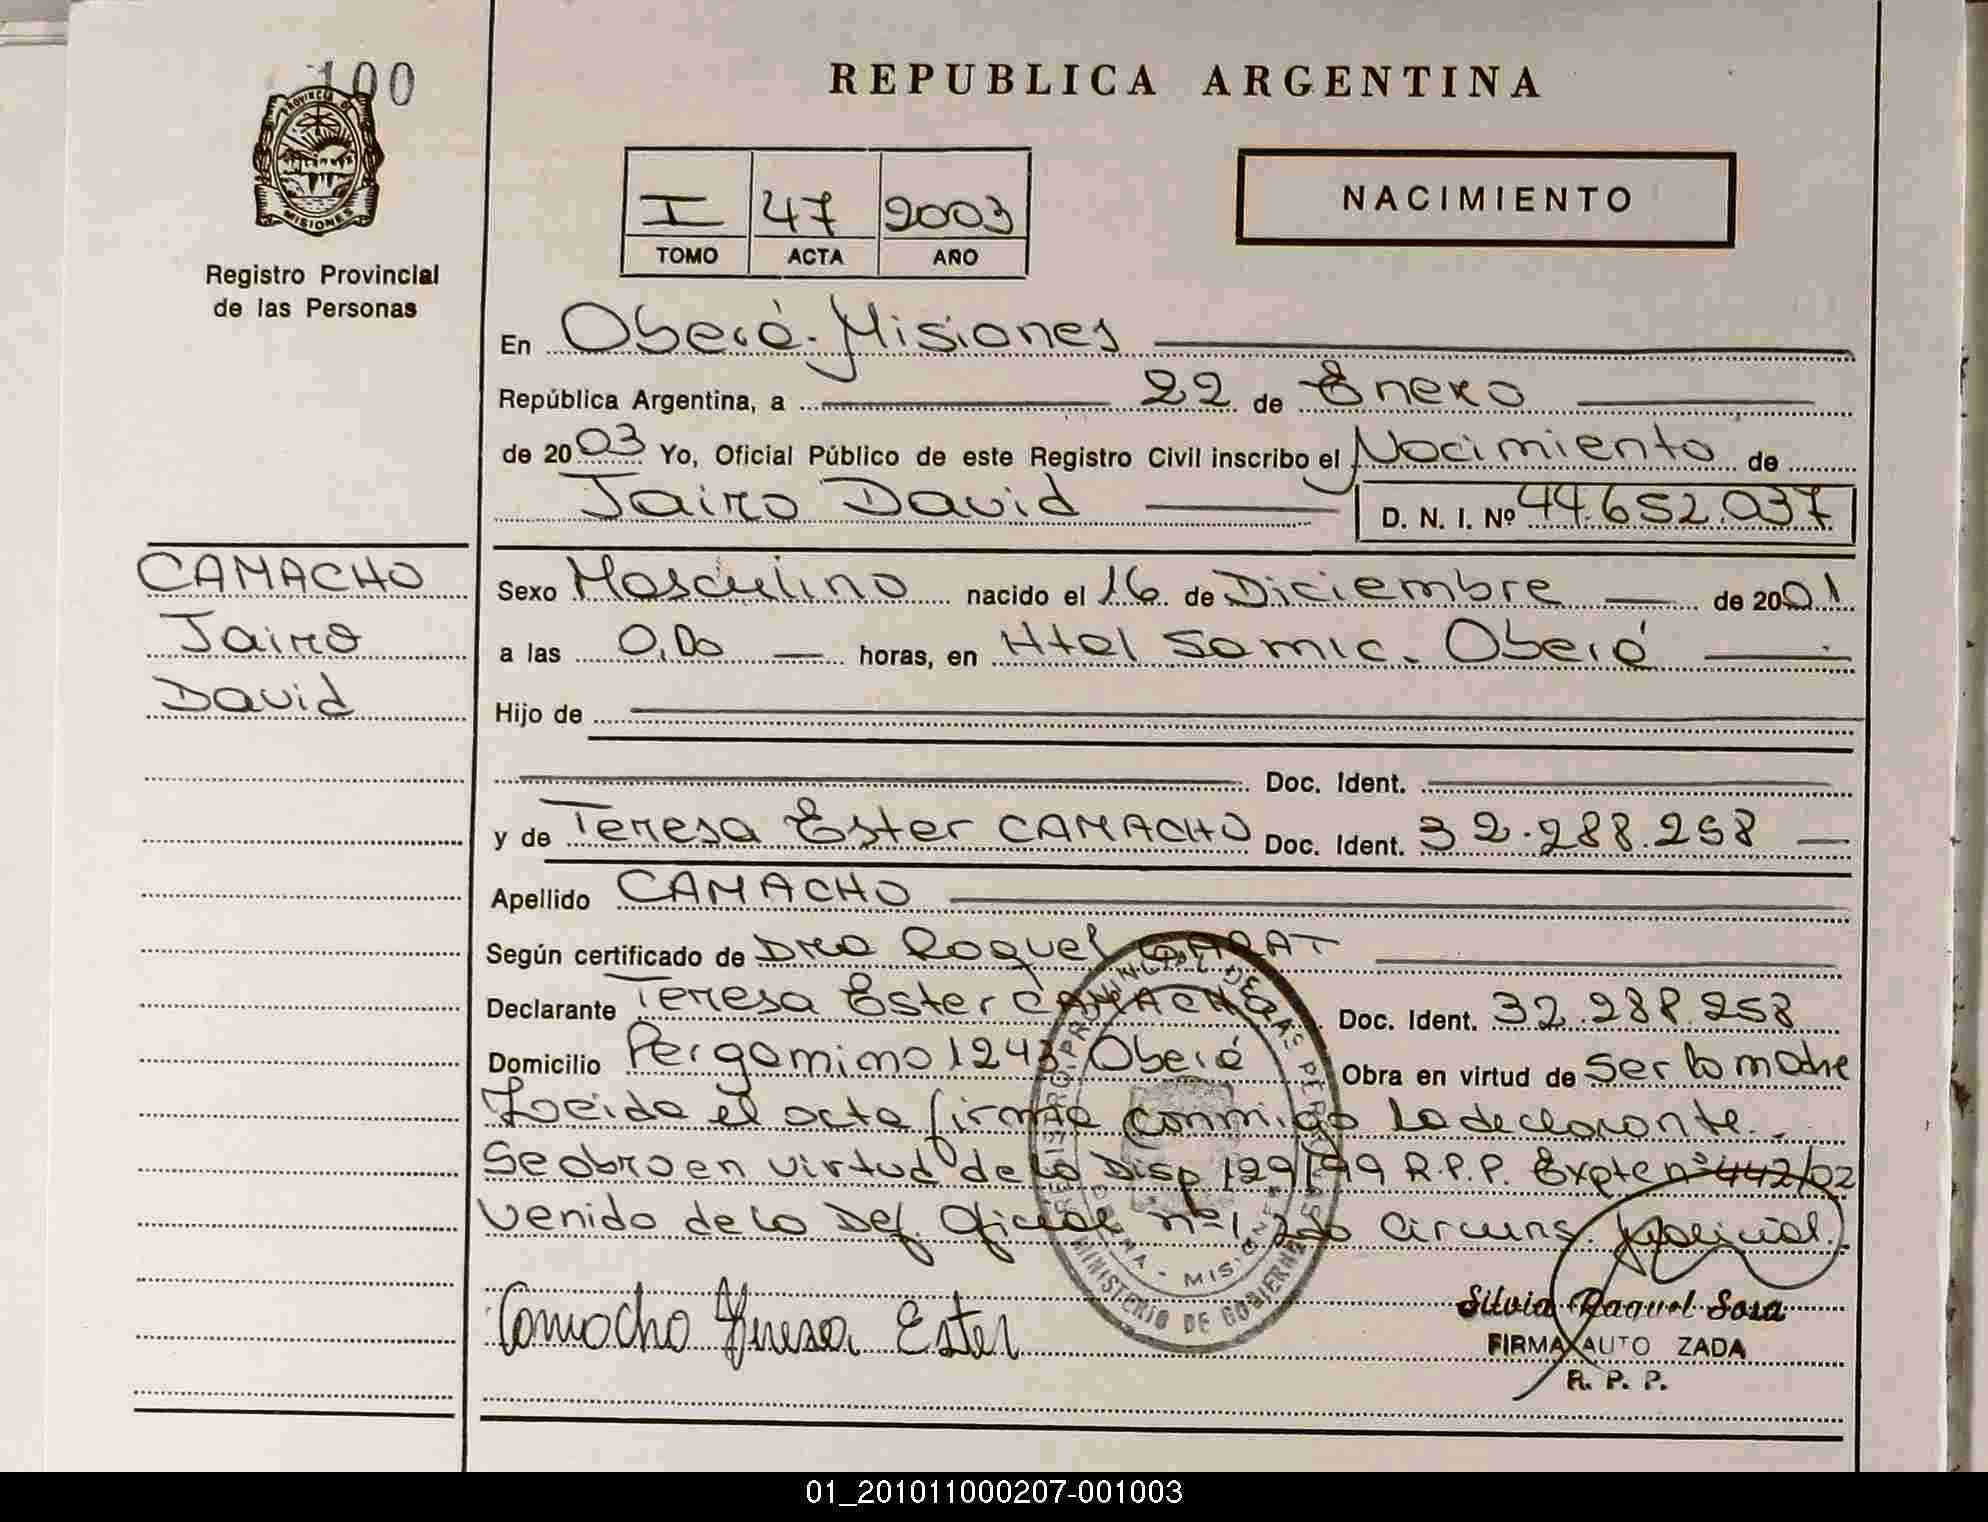 100
PROVINCIA DE
MISIONES
Registro Provincial
de las Personas
REPUBLICA ARGENTINA
I 47 2003
TOMO ACTA AÑO
NACIMIENTO
En Oberá - Misiones
República Argentina, a 22 de Enero
de 2003 Yo, Oficial Público de este Registro Civil inscribo el Nacimiento de
Jairo David D. N. I. Nº 44.652.037
CAMACHO
Jairo
David
Sexo Masculino nacido el 16 de Diciembre de 2001
a las 0,00 horas, en Htal Samic. Oberá
Hijo de
Doc. Ident.
y de Teresa Ester CAMACHO Doc. Ident. 32.288.258
Apellido CAMACHO
Según certificado de Dra Raquel GARAT
Declarante Teresa Ester CAMACHO Doc. Ident. 32.288.258
Domicilio Pergamino 1243 Oberá Obra en virtud de ser la madre
Leida el acta firma conmigo la declarante.
Se obra en virtud de la Disp 129/99 R.P.P. Expte nº 442/02
venido de la Def. Oficial nº 1 2da Circuns. Judicial.
REGISTRO PROVINCIAL DE LAS PERSONAS
MISIONES
MINISTERIO DE GOBIERNO
Camacho Teresa Ester
Silvia Raquel Sosa
FIRMA AUTO ZADA
R. P. P.
01_201011000207-001003